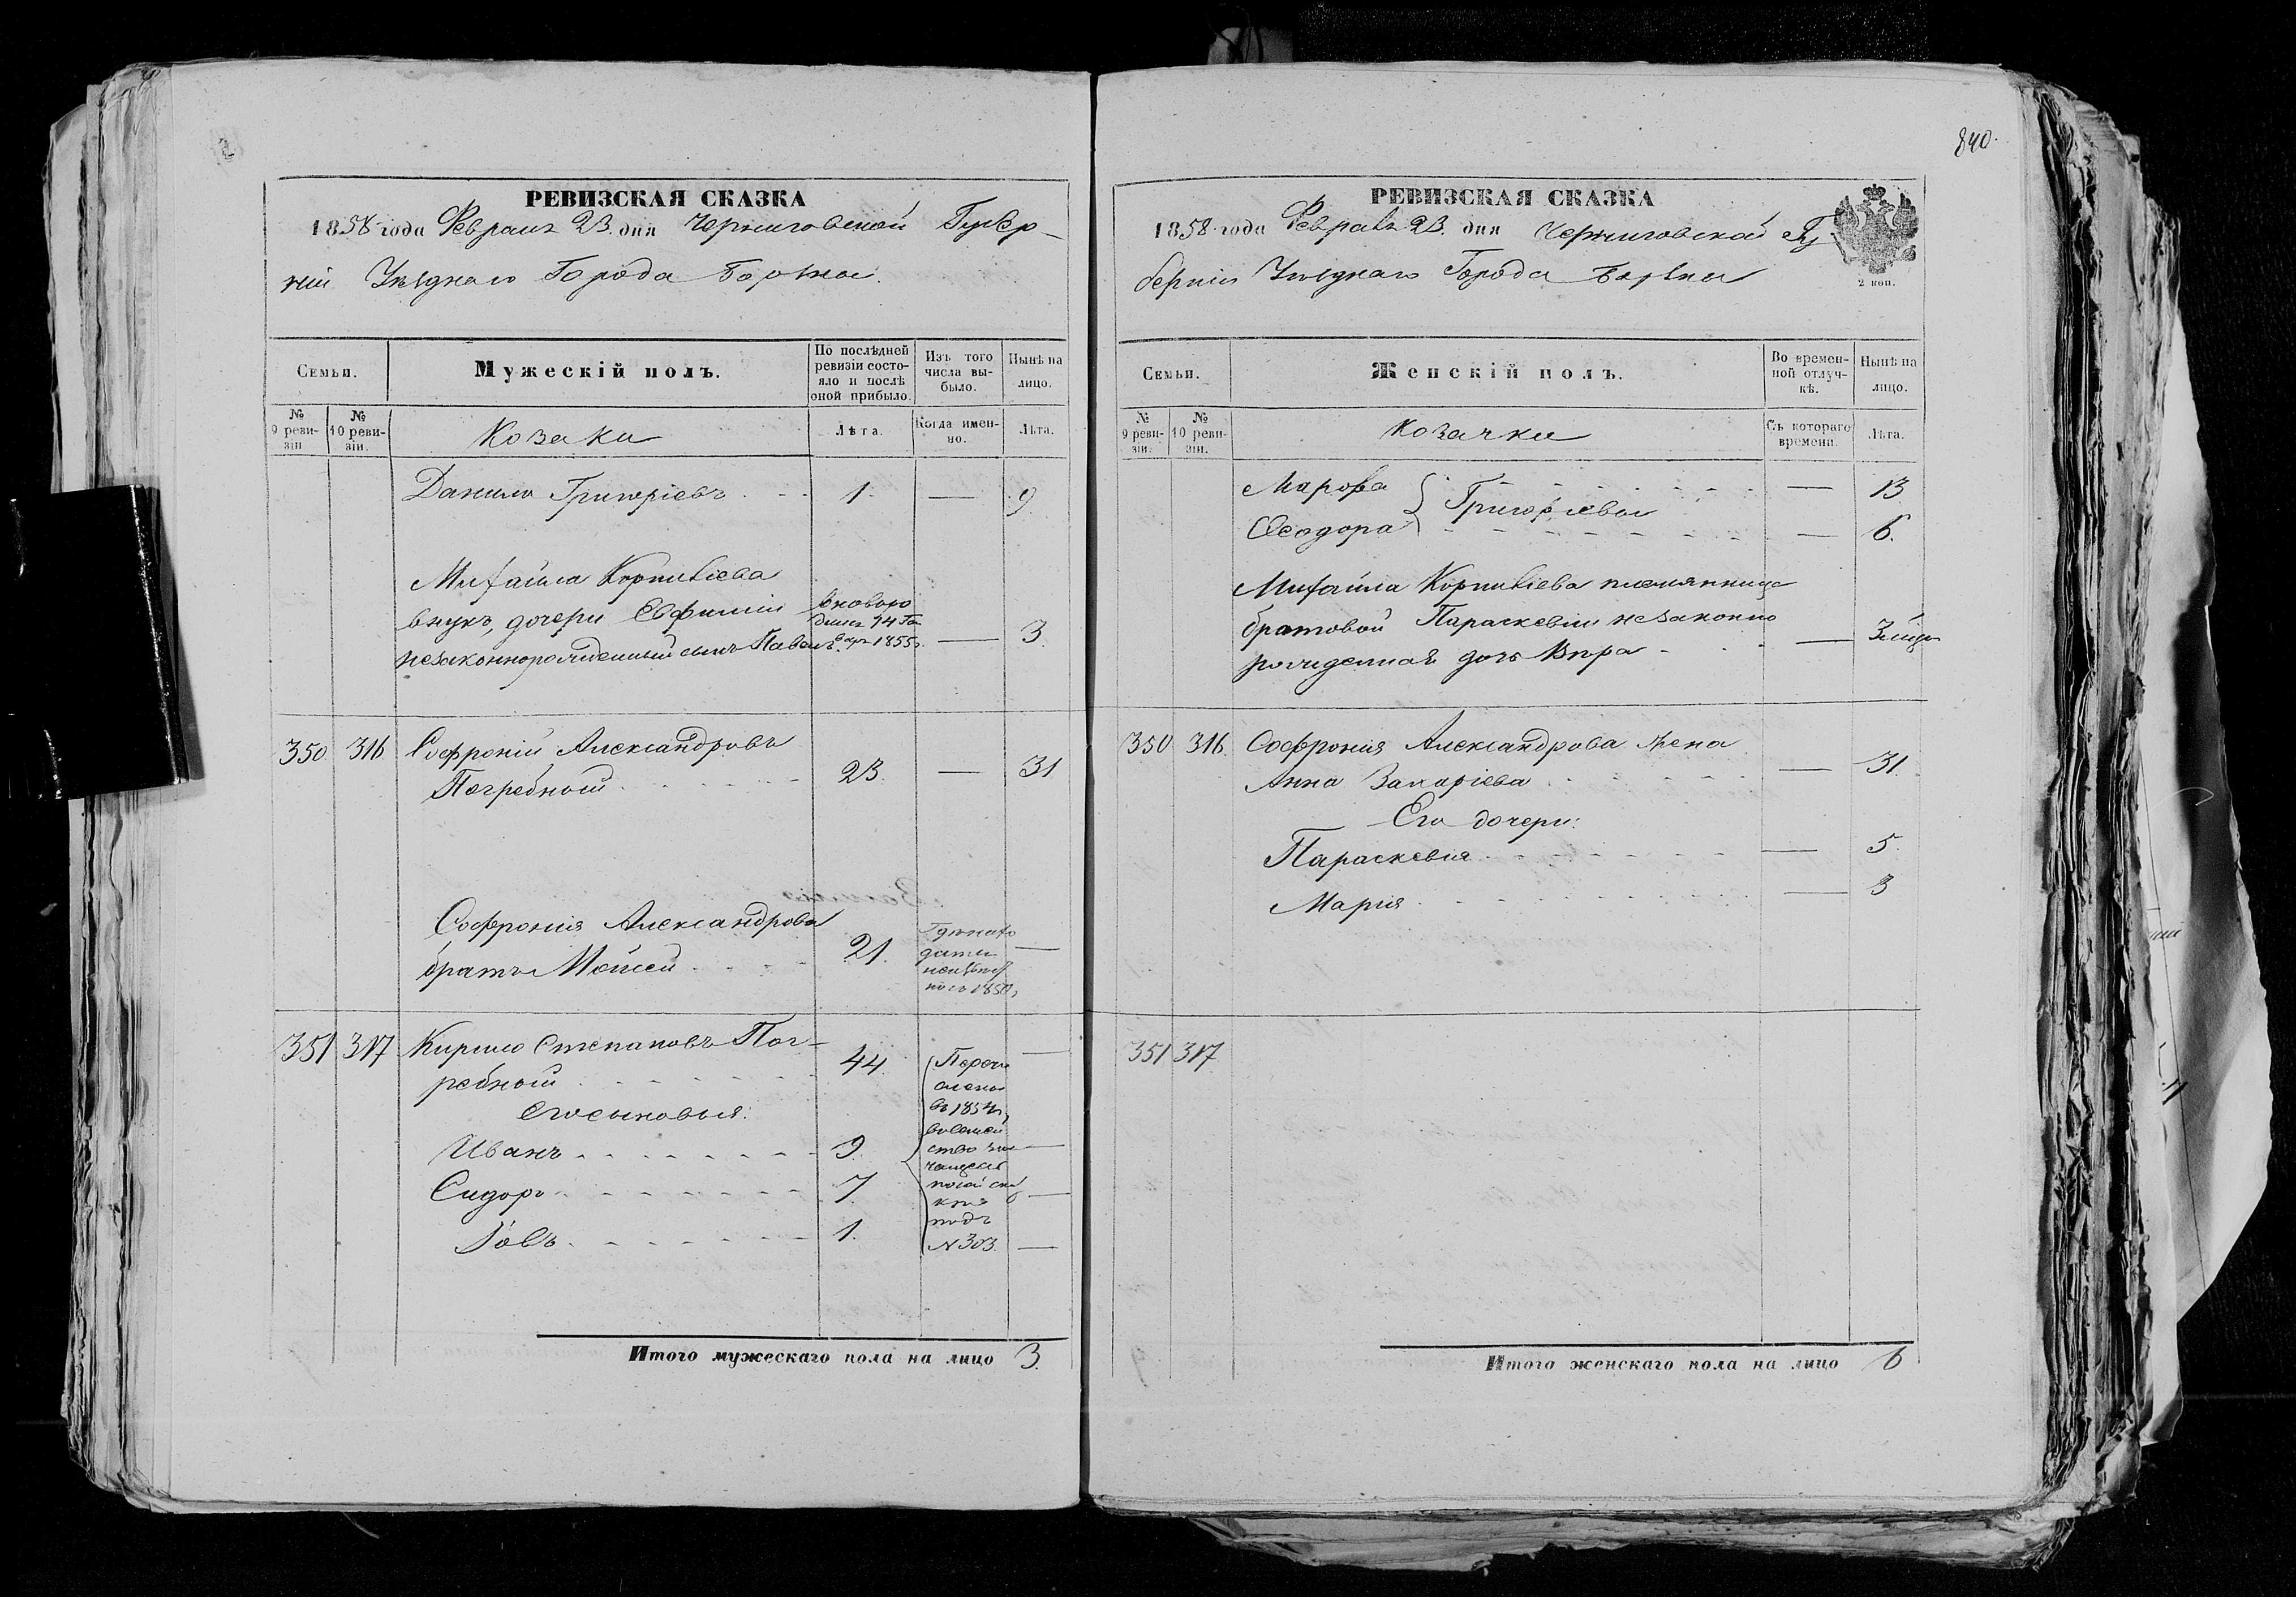 840.
РЕВИЗСКАЯ СКАЗКА
1858 года Февраля 23 дня Черниговской Губер-
ніи Уѣзднаго Города Борзны.
Семьи.
Мужескій полъ.
По послѣдней
ревизіи состо-
яло и послѣ
оной прибыло.
Изъ того
числа вы-
было.
Нынѣ на
лицо.
№
9 реви-
зіи
№
10 реви-
зіи.
Козаки
Лѣта.
Когда имен-
но.
Лѣта.
Данило Григоріевъ 1. — 9
Михайла Корниліева
внукъ, дочери Евфиміи
незаконнорожденный сынъ Павелъ. — 3.
1855
350 316 Софроній Александровъ
Погребной 23. — 31
Софронія Александрова
братъ Мойсей 21. —
1850
351 317 Кирило Степановъ Пог-
ребной 44. —
его сыновья:
Иванъ 9. —
Сидоръ 7. —
Іовъ 1. —
Перечи
слены
въ 1854
подъ
№ 303.
Итого мужескаго пола на лицо 3.
РЕВИЗСКАЯ СКАЗКА
1858 года Февраля 23 дня Черниговской Гу-
берніи Уѣзднаго Города Борзны
2 коп.
Семьи.
Женскій полъ.
Во времен-
ной отлуч-
кѣ.
Нынѣ на
лицо.
№
9 реви-
зіи.
№
10 реви-
зіи.
Козачки
Съ котораго
времени.
Лѣта.
Марфа — 13
Григоріевы
Ѳеодора — 6.
Михайла Корниліева племянницы
братовой Параскевіи незаконно
рожденная дочь Вѣра —
350 316 Софронія Александрова жена
Анна Захаріева — 31.
Его дочери:
Параскевія — 5.
Марія — 3
351 317
Итого женскаго пола на лицо 6